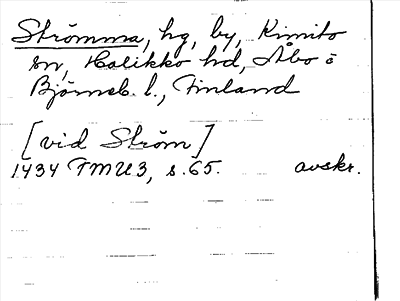 Strömma, hg, by, Kimito
sn, Halikko hd, Åbo o
Björneb. l., Finland
[vid Ström]
1434 FMU3, s. 65. avskr.